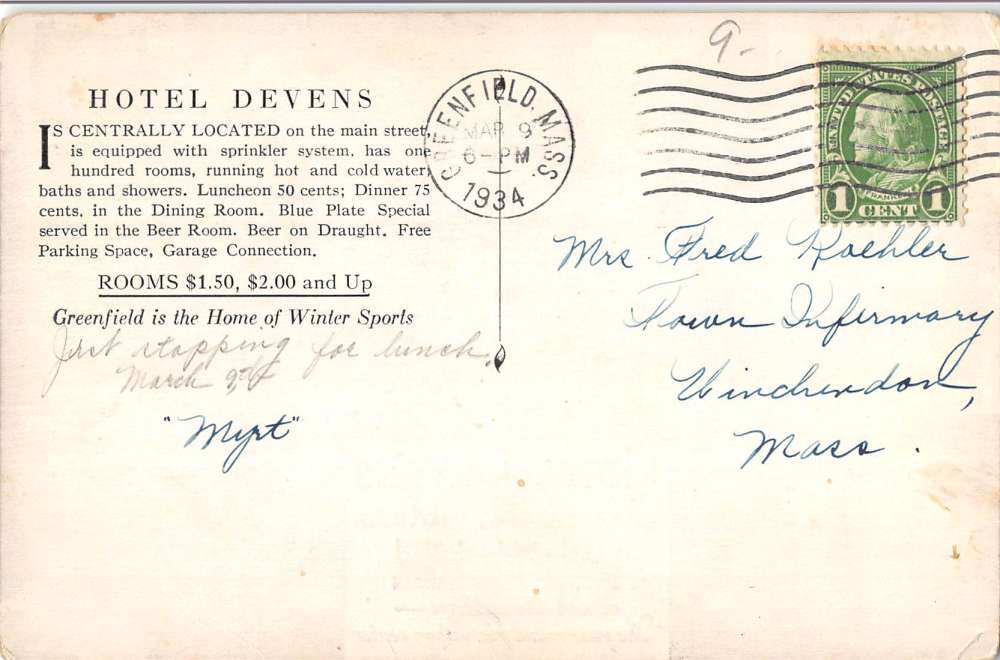 HOTEL DEVENS
IS CENTRALLY LOCATED on the main street,
is equipped with sprinkler system, has one
hundred rooms, running hot and cold water,
baths and showers. Luncheon 50 cents; Dinner 75
cents, in the Dining Room. Blue Plate Special
served in the Beer Room. Beer on Draught. Free
Parking Space, Garage Connection.
ROOMS $1.50, $2.00 and Up
Greenfield is the Home of Winter Sports
Just stopping for lunch.
March 9th
"Myrt"
GREENFIELD, MASS.
2
MAR 9
6-PM
1934
9-
UNITED STATES POSTAGE
FRANKLIN
1 CENT 1
Mrs. Fred Koehler
Town Infirmary
Winchendon,
Mass.